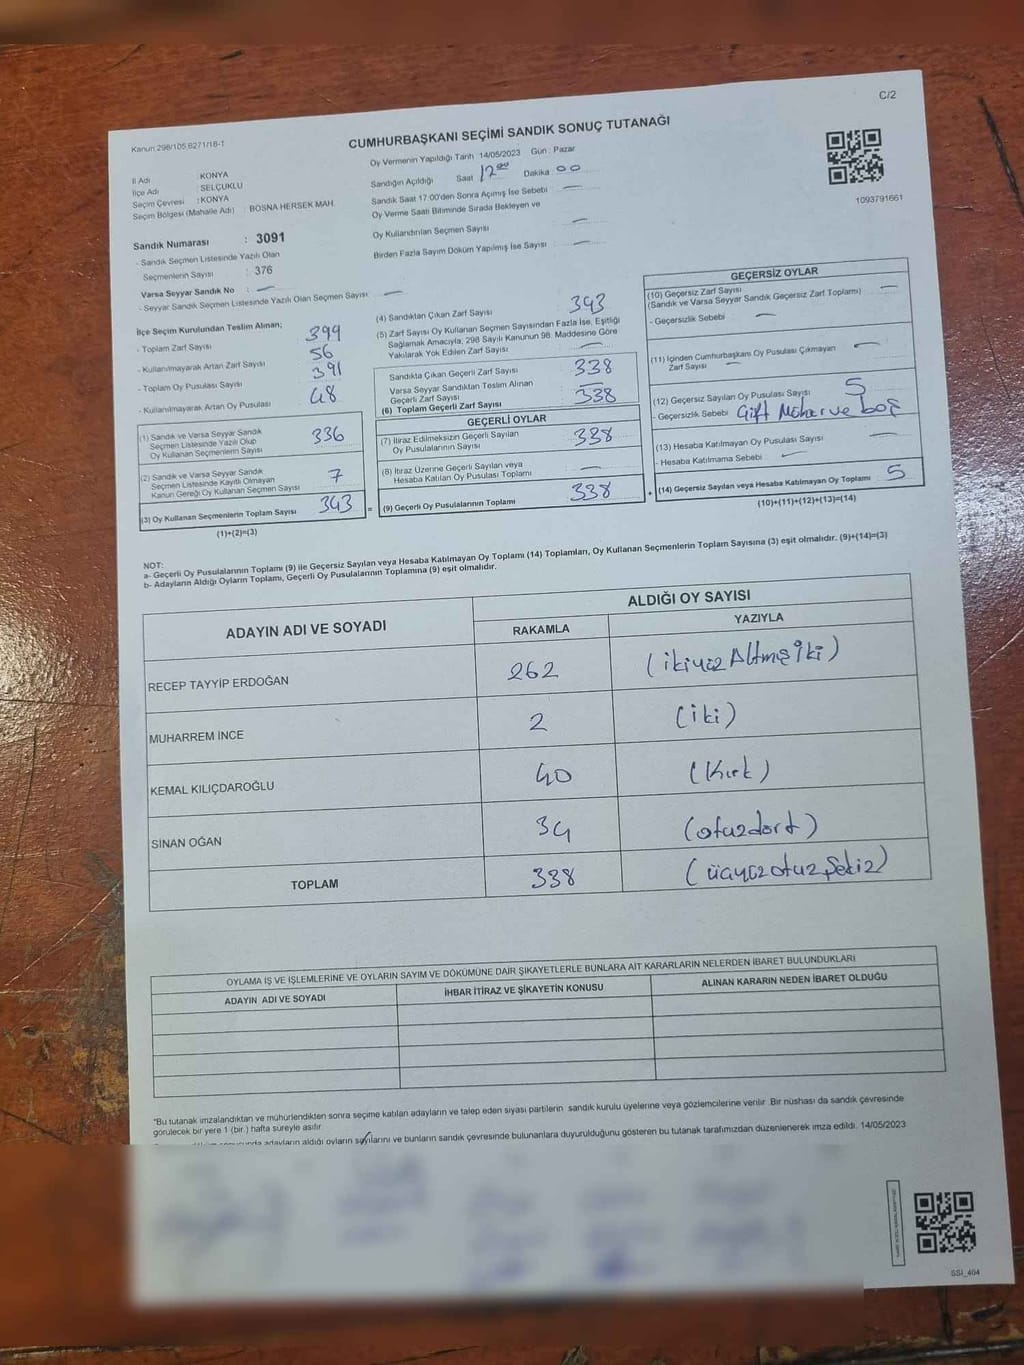 C/2
Kanun:298/105,6271/18-1
CUMHURBAŞKANI SEÇİMİ SANDIK SONUÇ TUTANAĞI
İl Adı : KONYA
İlçe Adı : SELÇUKLU
Seçim Çevresi : KONYA
Seçim Bölgesi (Mahalle Adı) : BOSNA HERSEK MAH.
Oy Vermenin Yapıldığı Tarih 14/05/2023 Gün : Pazar
Sandığın Açıldığı Saat 17 00 Dakika 00
Sandık Saat 17:00'den Sonra Açılmış İse Sebebi —
Oy Verme Saati Bitiminde Sırada Bekleyen ve
Oy Kullandırılan Seçmen Sayısı —
Birden Fazla Sayım Döküm Yapılmış İse Sayısı —
1093791661
Sandık Numarası : 3091
- Sandık Seçmen Listesinde Yazılı Olan
Seçmenlerin Sayısı : 376
Varsa Seyyar Sandık No : —
- Seyyar Sandık Seçmen Listesinde Yazılı Olan Seçmen Sayısı : —
İlçe Seçim Kurulundan Teslim Alınan;
- Toplam Zarf Sayısı 399
- Kullanılmayarak Artan Zarf Sayısı 56
- Toplam Oy Pusulası Sayısı 391
- Kullanılmayarak Artan Oy Pusulası 48
(1) Sandık ve Varsa Seyyar Sandık
Seçmen Listesinde Yazılı Olup
Oy Kullanan Seçmenlerin Sayısı 336
(2) Sandık ve Varsa Seyyar Sandık
Seçmen Listesinde Kayıtlı Olmayan
Kanun Gereği Oy Kullanan Seçmen Sayısı 7
(3) Oy Kullanan Seçmenlerin Toplam Sayısı 343
(1)+(2)=(3)
(4) Sandıktan Çıkan Zarf Sayısı 343
(5) Zarf Sayısı Oy Kullanan Seçmen Sayısından Fazla İse, Eşitliği
Sağlamak Amacıyla, 298 Sayılı Kanunun 98. Maddesine Göre
Yakılarak Yok Edilen Zarf Sayısı —
Sandıkta Çıkan Geçerli Zarf Sayısı 338
Varsa Seyyar Sandıktan Teslim Alınan
Geçerli Zarf Sayısı —
(6) Toplam Geçerli Zarf Sayısı 338
GEÇERLİ OYLAR
(7) İtiraz Edilmeksizin Geçerli Sayılan
Oy Pusulalarının Sayısı 338
(8) İtiraz Üzerine Geçerli Sayılan veya
Hesaba Katılan Oy Pusulası Toplamı —
= (9) Geçerli Oy Pusulalarının Toplamı 338
GEÇERSİZ OYLAR
(10) Geçersiz Zarf Sayısı —
(Sandık ve Varsa Seyyar Sandık Geçersiz Zarf Toplamı)
- Geçersizlik Sebebi —
(11) İçinden Cumhurbaşkanı Oy Pusulası Çıkmayan
Zarf Sayısı —
(12) Geçersiz Sayılan Oy Pusulası Sayısı 5
- Geçersizlik Sebebi Çift Mühür ve boş
(13) Hesaba Katılmayan Oy Pusulası Sayısı —
- Hesaba Katılmama Sebebi —
+ (14) Geçersiz Sayılan veya Hesaba Katılmayan Oy Toplamı 5
(10)+(11)+(12)+(13)=(14)
NOT:
a- Geçerli Oy Pusulalarının Toplamı (9) ile Geçersiz Sayılan veya Hesaba Katılmayan Oy Toplamı (14) Toplamları, Oy Kullanan Seçmenlerin Toplam Sayısına (3) eşit olmalıdır. (9)+(14)=(3)
b- Adayların Aldığı Oyların Toplamı, Geçerli Oy Pusulalarının Toplamına (9) eşit olmalıdır.
ADAYIN ADI VE SOYADI
ALDIĞI OY SAYISI
RAKAMLA YAZIYLA
RECEP TAYYİP ERDOĞAN 262 (ikiyüzAltmışiki)
MUHARREM İNCE 2 (iki)
KEMAL KILIÇDAROĞLU 40 (Kırk)
SİNAN OĞAN 34 (otuzdört)
TOPLAM 338 (üçyüzotuzSekiz)
OYLAMA İŞ VE İŞLEMLERİNE VE OYLARIN SAYIM VE DÖKÜMÜNE DAİR ŞİKAYETLERLE BUNLARA AİT KARARLARIN NELERDEN İBARET BULUNDUKLARI
ADAYIN ADI VE SOYADI İHBAR İTİRAZ VE ŞİKAYETİN KONUSU ALINAN KARARIN NEDEN İBARET OLDUĞU
*Bu tutanak imzalandıktan ve mühürlendikten sonra seçime katılan adayların ve talep eden siyasi partilerin sandık kurulu üyelerine veya gözlemcilerine verilir. Bir nüshası da sandık çevresinde
görülecek bir yere 1 (bir.) hafta süreyle asılır.
adayların aldığı oyların sayılarını ve bunların sandık çevresinde bulunanlara duyurulduğunu gösteren bu tutanak tarafımızdan düzenlenerek imza edildi. 14/05/2023
SSİ_404